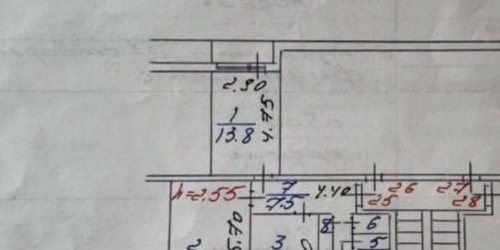 2.90
4.75
1
13.8
h=2.55
7
7.5
4.40
25
26
27
28
2
3
8
6
5